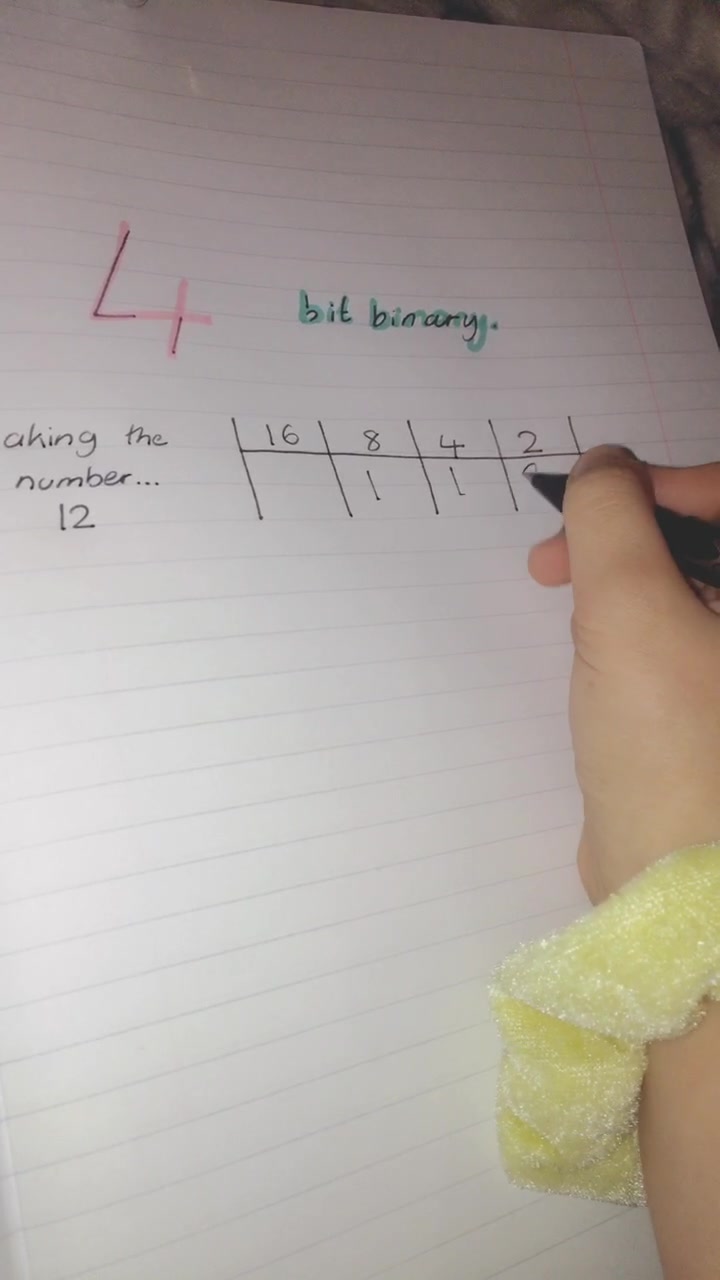 4 bit binary.
aking the
number...
12
16 8 4 2
1 1